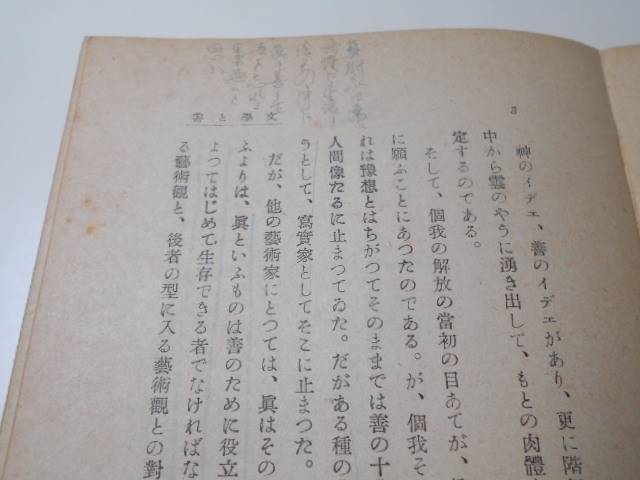 3
神のイデェ、善のイデェがあり、更に階
中から雲のやうに湧き出して、もとの肉體
定するのである。
そして、個我の解放の當初の目あてが、
に願ふことにあつたのである。が、個我そ
れは豫想とはちがつてそのままでは善の十
人間像たるに止まつてゐた。だがある種の
うとして、寫實家としてそこに止まつた。
だが、他の藝術家にとつては、眞はその
ふよりは、眞といふものは善のために役立
よつてはじめて生存できる者でなければな
る藝術觀と、後者の型に入る藝術觀との對
文學と善